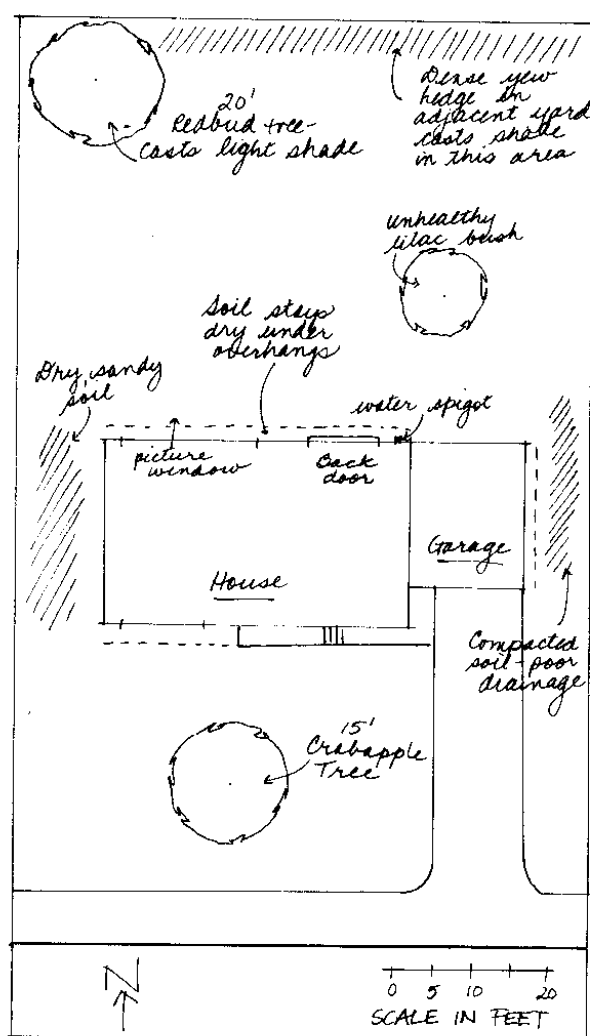 20'
Redbud tree-
casts light shade
Dense yew
hedge in
adjacent yard
casts shade
in this area
unhealthy
lilac bush
Soil stays
dry under
overhangs
Dry, sandy
soil
water spigot
picture
window
Back
door
Garage
House
Compacted
soil-poor
drainage
15'
Crabapple
Tree
N
0 5 10 20
SCALE IN FEET